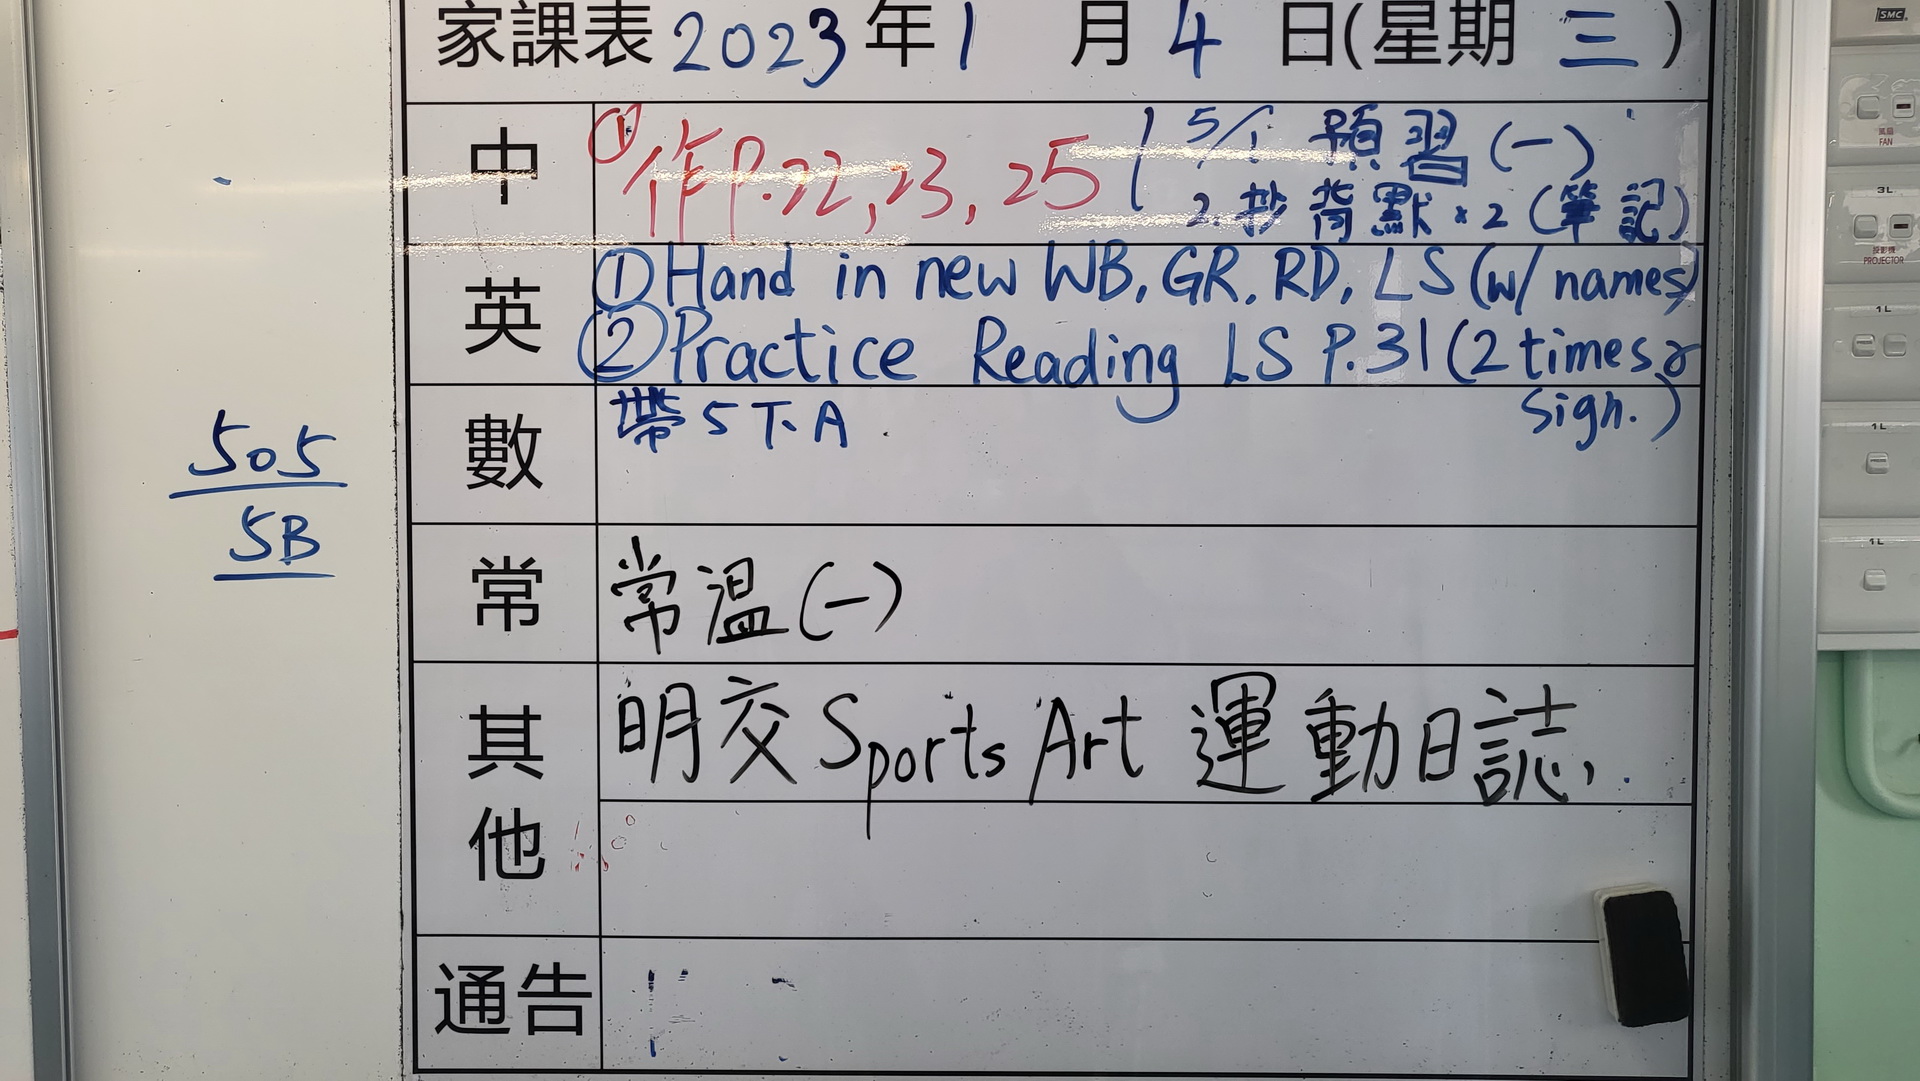 家課表 2023年1月4日(星期三)
中
①作P.22,23,25
5/1 預習(一)
2.抄背默×2(筆記)
英
①Hand in new WB, GR, RD, LS (w/ names)
②Practice Reading LS P.31 (2 times &
sign.)
數
帶5下A
常
常溫(一)
其他
明交Sports Art 運動日誌,
通告
505
5B
SMC
風扇
FAN
3L
投影機
PROJECTOR
1L
1L
1L